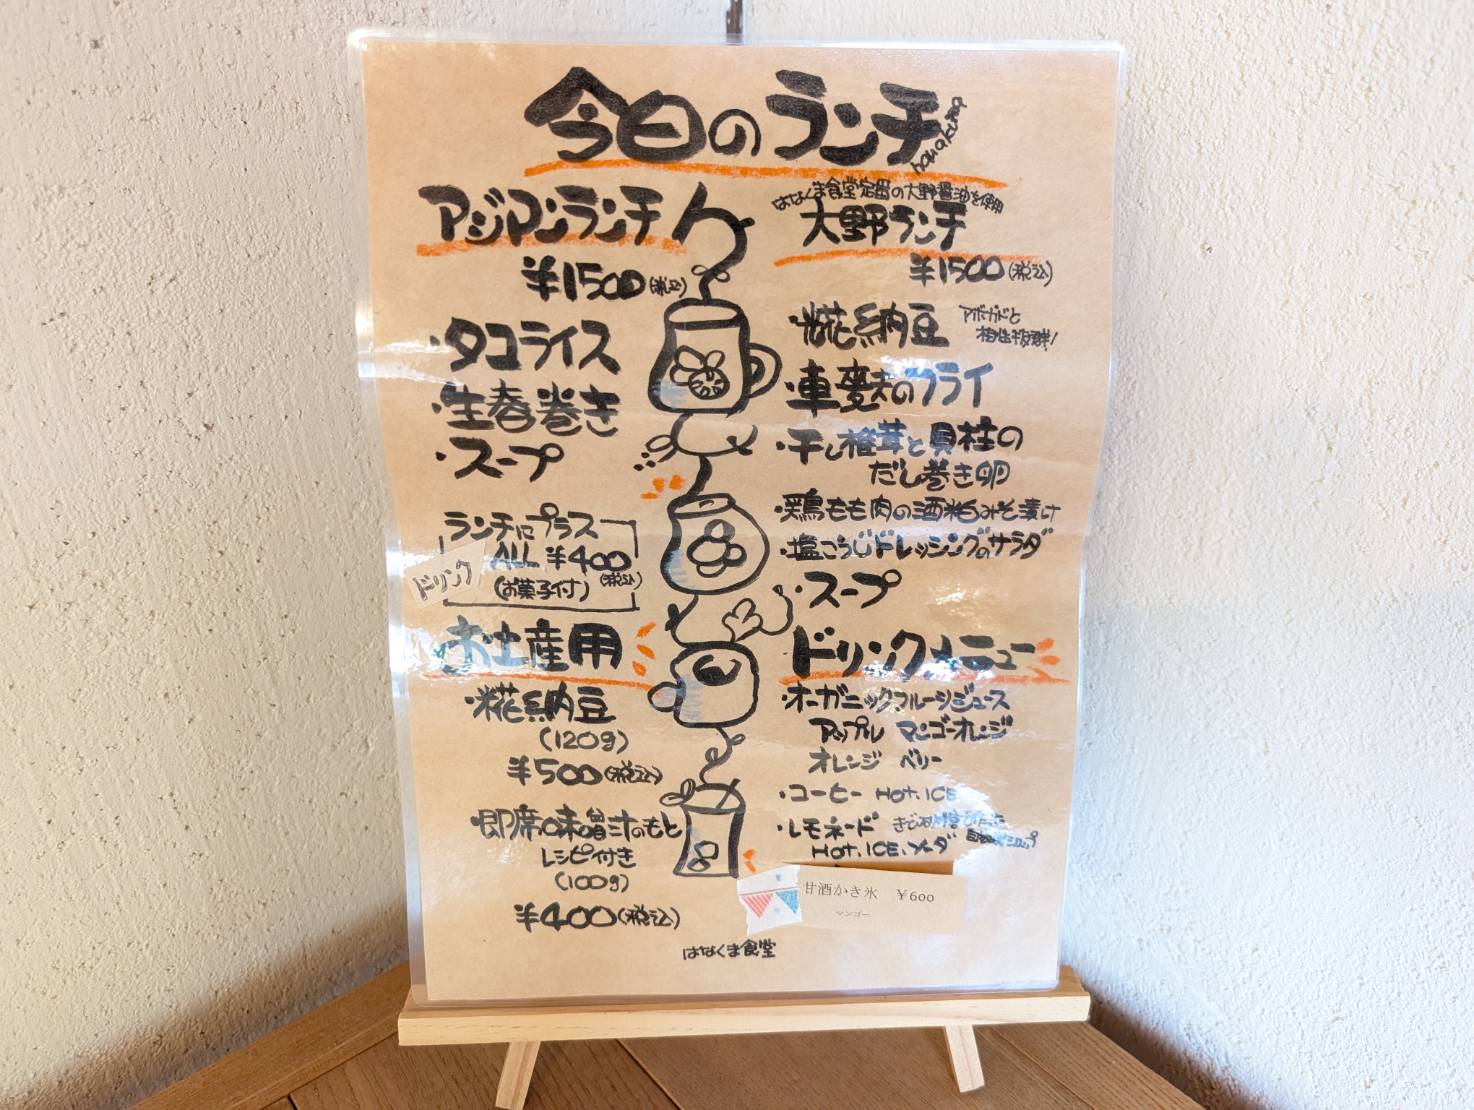 今日のランチ
hanakuma
アジアンランチ
¥1500(税込)
・タコライス
・生春巻き
・スープ
ランチにプラス
ドリンク ALL ¥400
(お菓子付) (税込)
お土産用
・糀納豆
(120g)
¥500(税込)
・即席味噌汁のもと
レシピ付き
(100g)
¥400(税込)
はなくま食堂定番の大野醤油を使用
大野ランチ
¥1500(税込)
・糀納豆 アボカドと
相性抜群!
・車麩のフライ
・干し椎茸と貝柱の
だし巻き卵
・鶏もも肉の酒粕みそ漬け
・塩こうじドレッシングのサラダ
・スープ
ドリンクメニュー
・オーガニックフルーツジュース
アップル マンゴーオレンジ
オレンジ ベリー
・コーヒー Hot.ICE
・レモネード
Hot.ICE.ソーダ
甘酒かき氷 ¥600
マンゴー
はなくま食堂